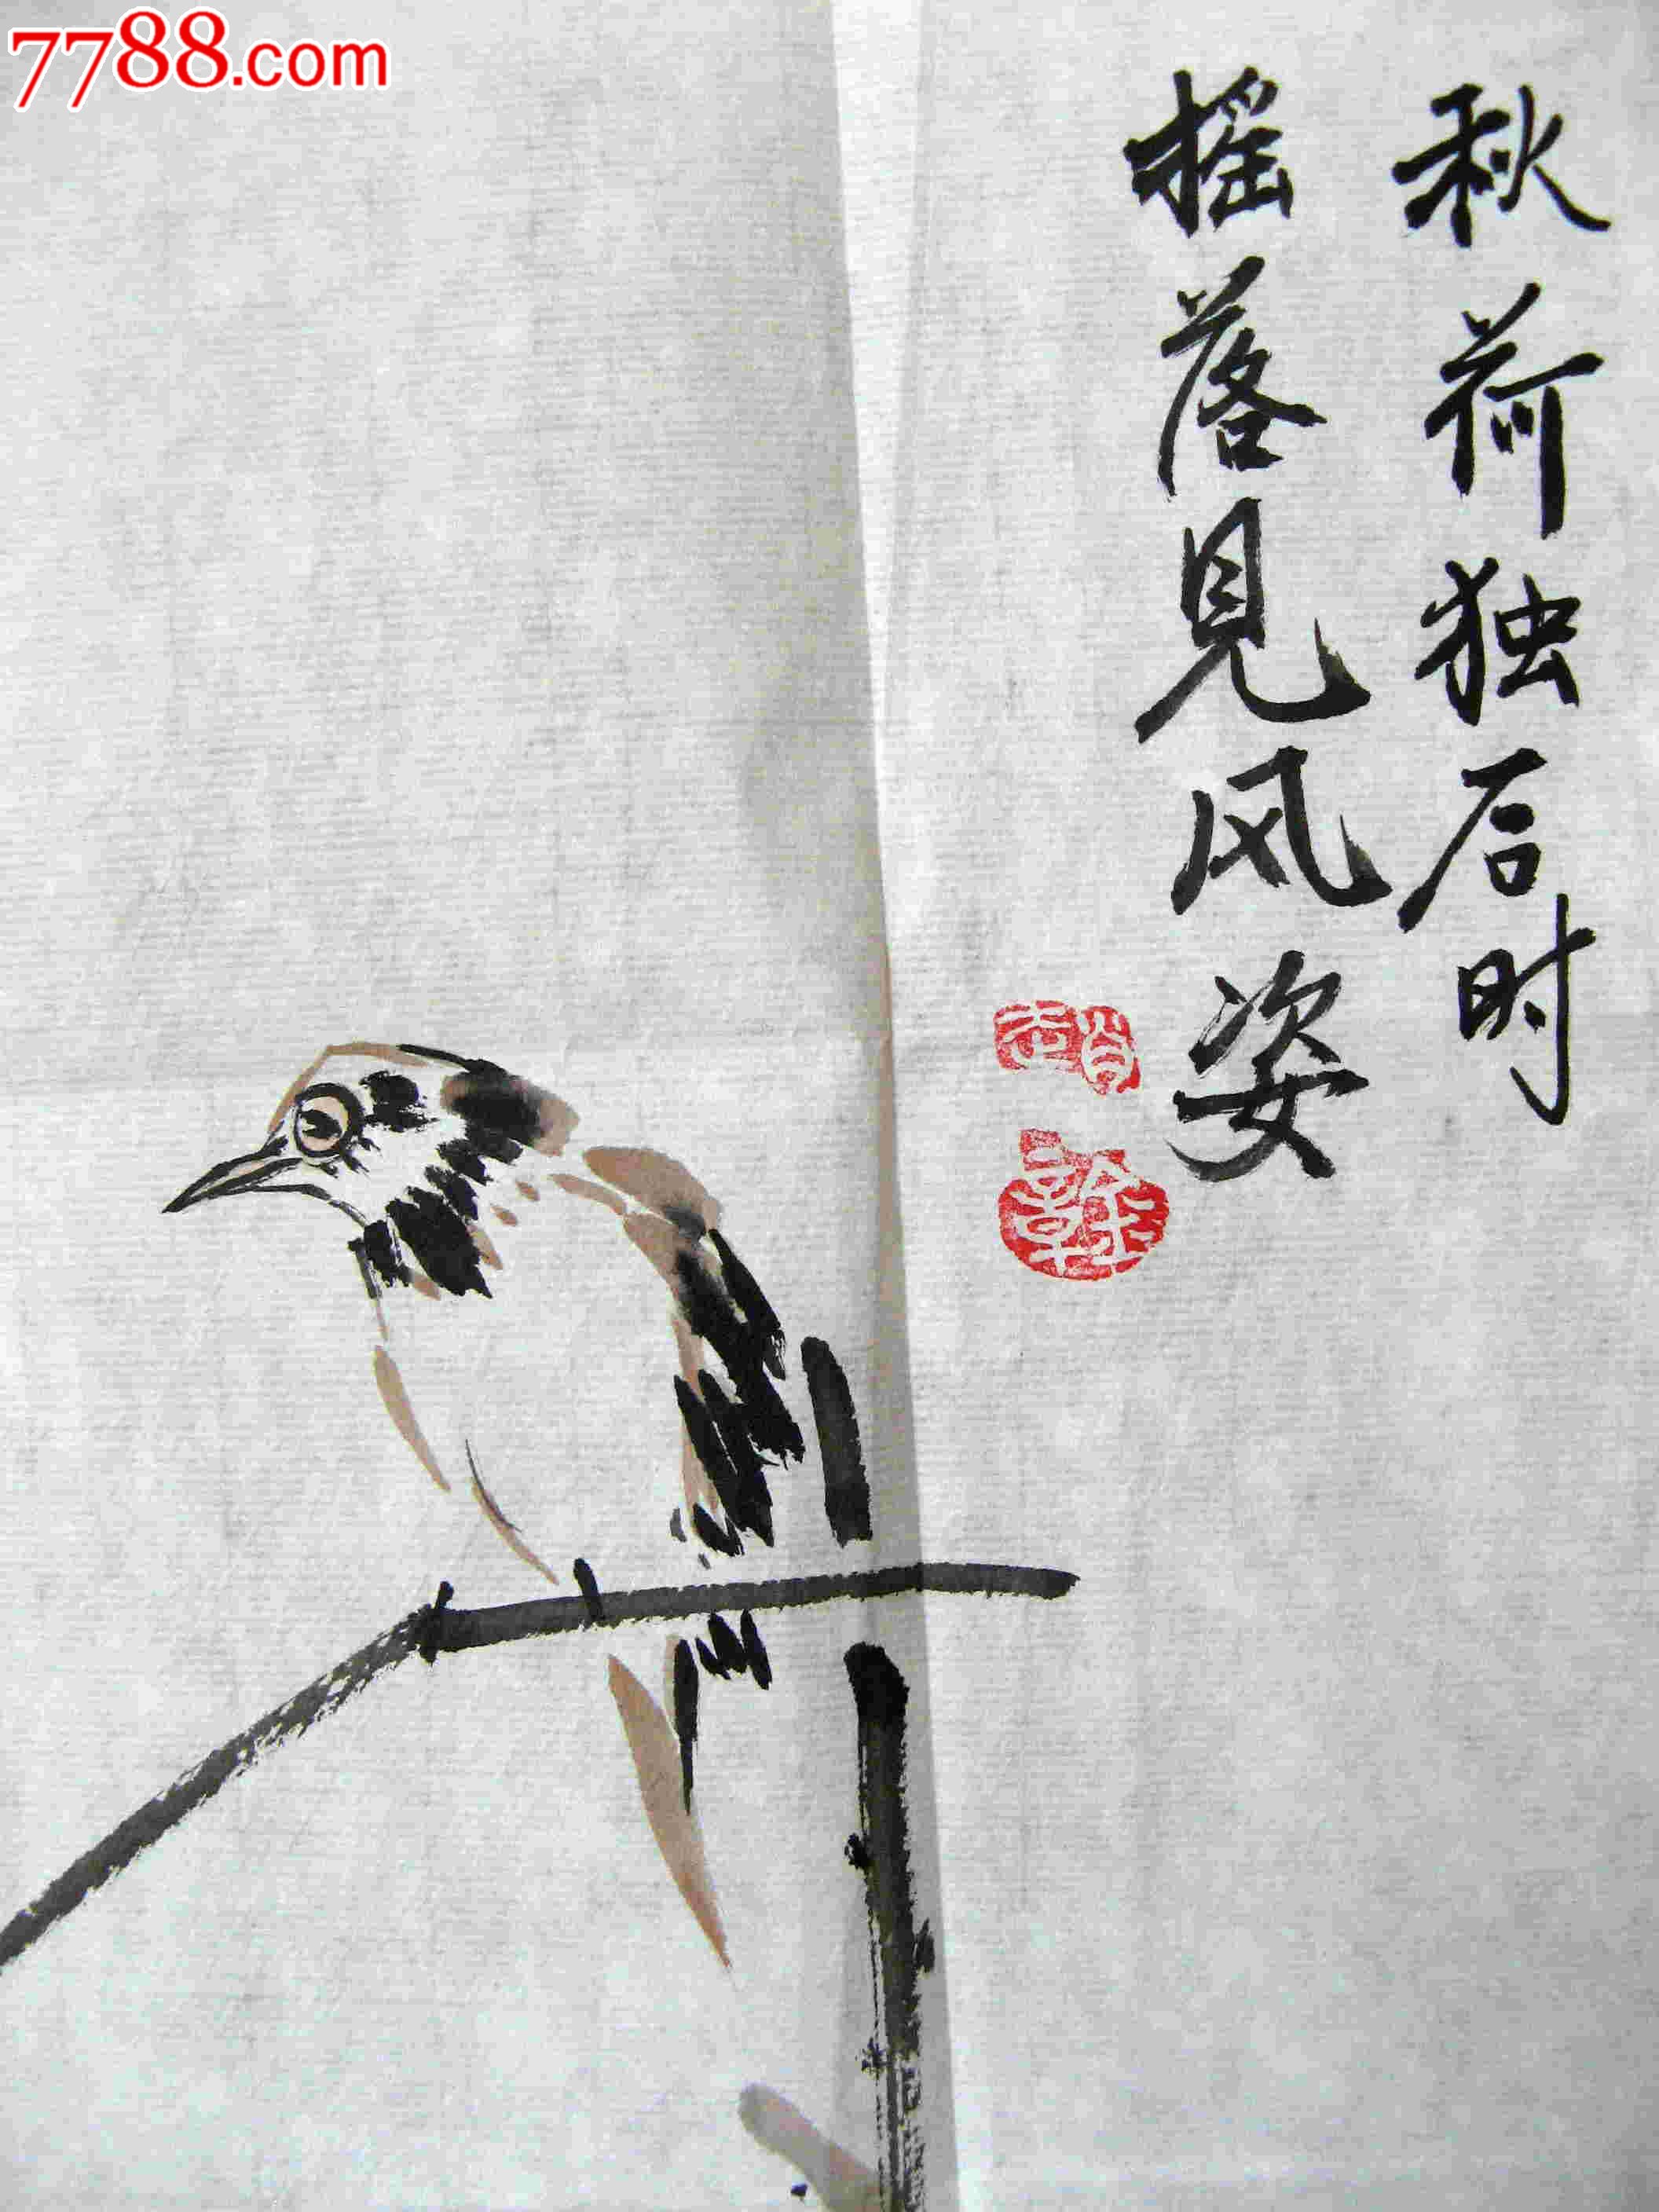 7788.com
秋荷独后时
摇落见风姿